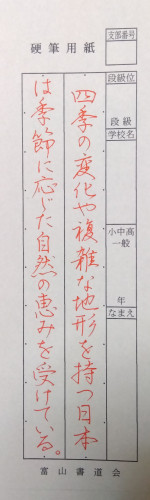 硬筆用紙
支部番号
段級位
段級
学校名
小中高一般
年
なまえ
四季の変化や複雑な地形を持つ日本
は季節に応じた自然の恵みを受けている。
富山書道会